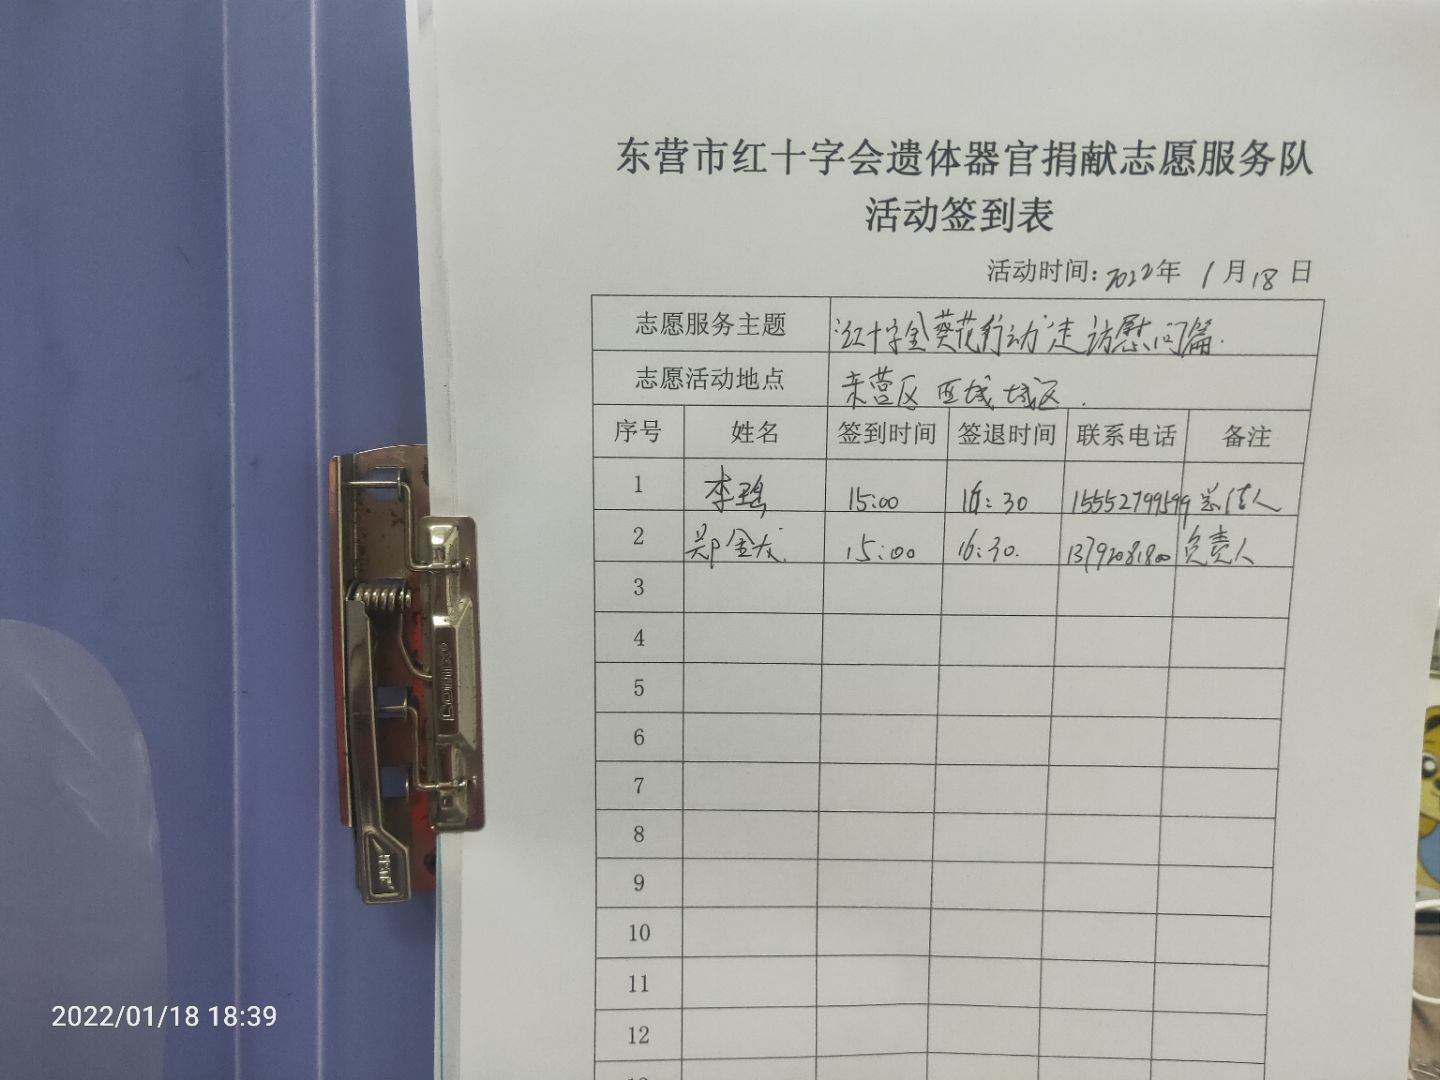 东营市红十字会遗体器官捐献志愿服务队
活动签到表
活动时间：2022年 1月18日
志愿服务主题 “红十字金葵花行动”走访慰问篇.
志愿活动地点 东营区 西城城区.
序号 姓名 签到时间 签退时间 联系电话 备注
1 李瑶 15:00 16:30 15552799599
2 郑金龙 15:00 16:30. 负责人
3
4
5
6
7
8
9
10
11
12
COMIX
2022/01/18 18:39